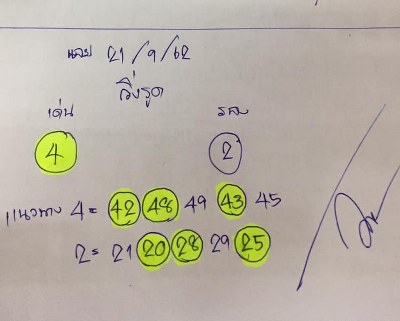 เลย 21/9/62
วิ่งรูด
เด่น รอง
4 2
แนวทาง 4 = 42 48 49 43 45
2 = 21 20 28 29 25